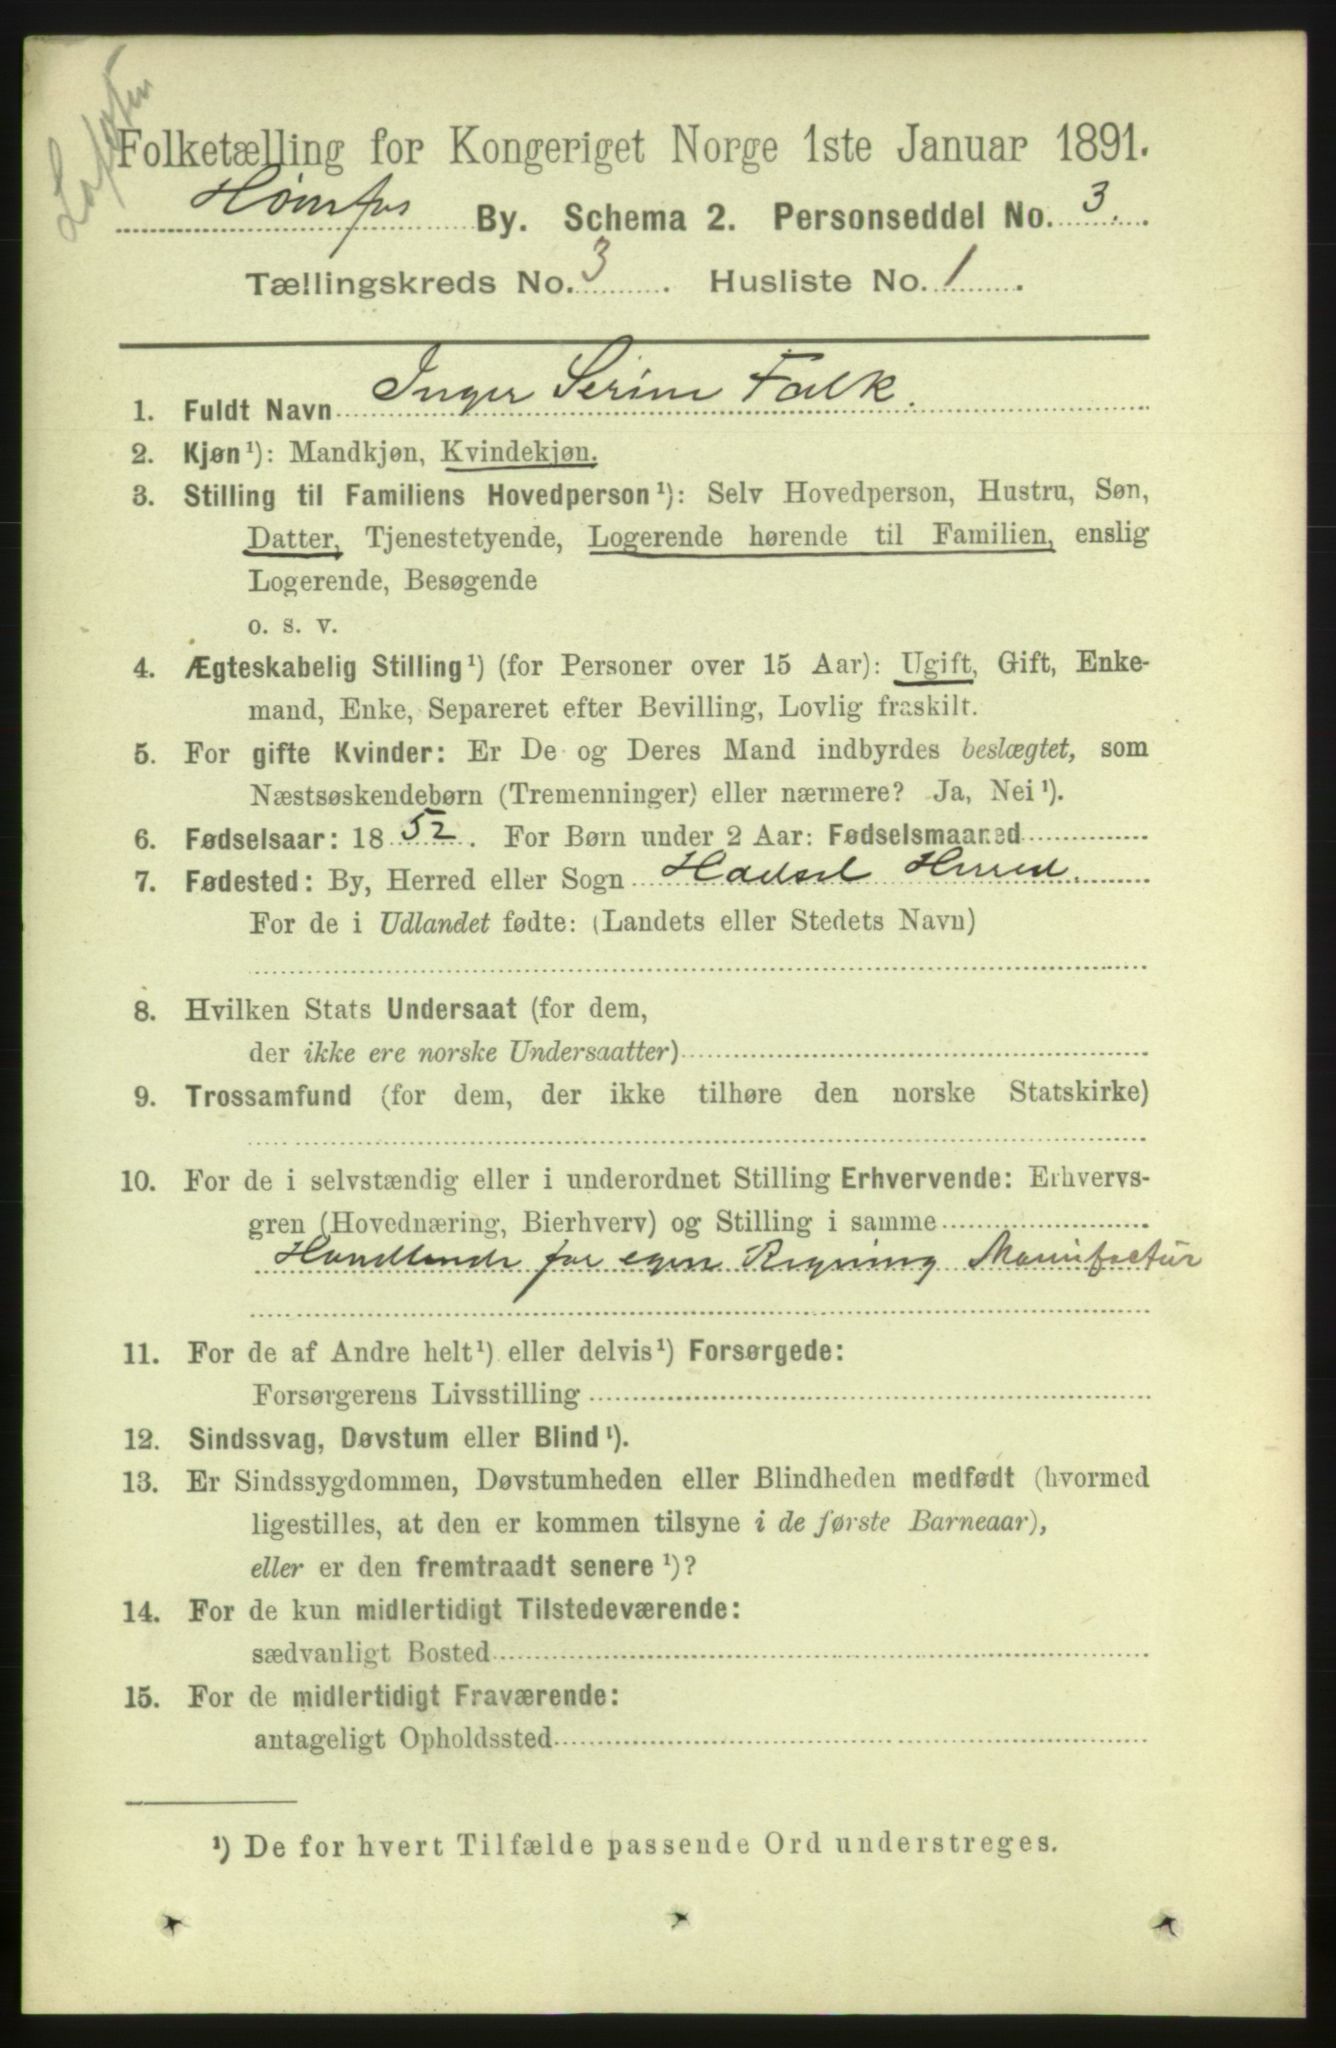 Lofoten
Folketælling for Kongeriget Norge 1ste Januar 1891.
Hønefos By. Schema 2. Personseddel No. 3.
Tællingskreds No. 3. Husliste No. 1.
1. Fuldt Navn Inger Serine Falk.
2. Kjøn ¹): Mandkjøn, Kvindekjøn.
3. Stilling til Familiens Hovedperson ¹): Selv Hovedperson, Hustru, Søn,
Datter, Tjenestetyende, Logerende hørende til Familien, enslig
Logerende, Besøgende
o. s. v.
4. Ægteskabelig Stilling ¹) (for Personer over 15 Aar): Ugift, Gift, Enke-
mand, Enke, Separeret efter Bevilling, Lovlig fraskilt.
5. For gifte Kvinder: Er De og Deres Mand indbyrdes beslægtet, som
Næstsøskendebørn (Tremenninger) eller nærmere? Ja, Nei ¹).
6. Fødselsaar: 1852. For Børn under 2 Aar: Fødselsmaaned
7. Fødested: By, Herred eller Sogn Hadsel Herred.
For de i Udlandet fødte: (Landets eller Stedets Navn)
8. Hvilken Stats Undersaat (for dem,
der ikke ere norske Undersaatter)
9. Trossamfund (for dem, der ikke tilhøre den norske Statskirke)
10. For de i selvstændig eller i underordnet Stilling Erhvervende: Erhvervs-
gren (Hovednæring, Bierhverv) og Stilling i samme
Handlende for egen Regning Manufactur
11. For de af Andre helt ¹) eller delvis ¹) Forsørgede:
Forsørgerens Livsstilling
12. Sindssvag, Døvstum eller Blind ¹).
13. Er Sindssygdommen, Døvstumheden eller Blindheden medfødt (hvormed
ligestilles, at den er kommen tilsyne i de første Barneaar),
eller er den fremtraadt senere ¹)?
14. For de kun midlertidigt Tilstedeværende:
sædvanligt Bosted
15. For de midlertidigt Fraværende:
antageligt Opholdssted
¹) De for hvert Tilfælde passende Ord understreges.